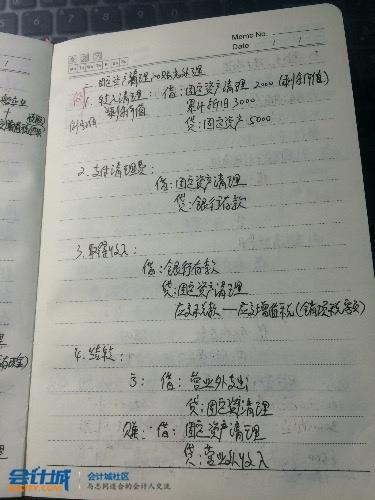 Memo No.
Date / /
固定资产清理的账务处理
1. 转入清理: 借:固定资产清理 2000 (剩余价值)
剩余价值 累计折旧 3000
贷:固定资产 5000
2. 支付清理费:
借:固定资产清理
贷:银行存款
3. 取得收入
借:银行存款
贷:固定资产清理
应交税费—应交增值税(销项税额)
4. 结转:
亏: 借:营业外支出
贷:固定资产清理
赚: 借:固定资产清理
贷:营业外收入
会计城
会计城社区
与志同道合的会计人交流